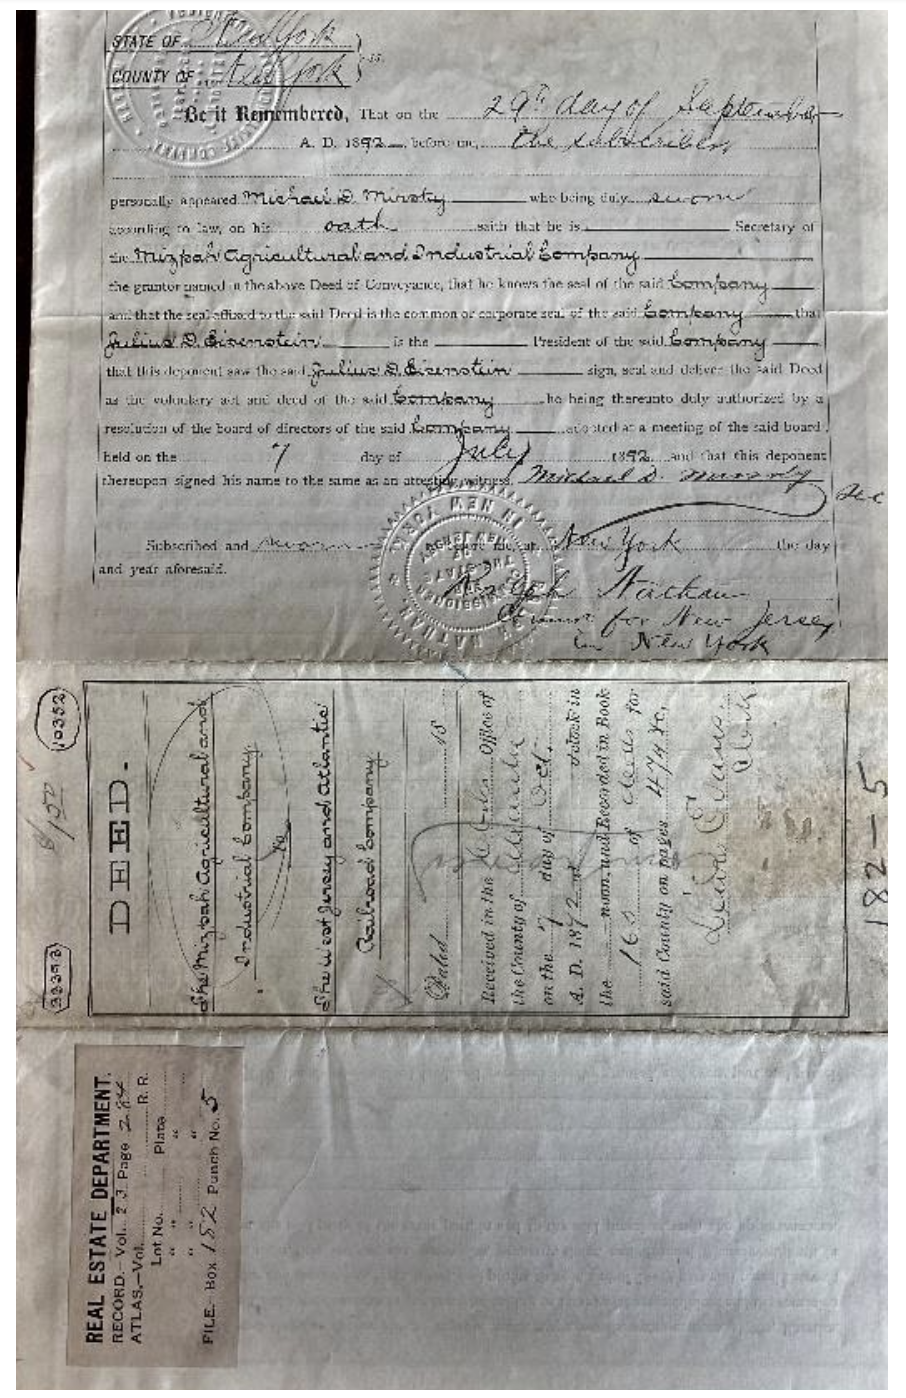 STATE OF New York
COUNTY OF New York ss.
Be it Remembered, That on the 29th day of September
A. D. 1892, before me, the subscriber,
personally appeared Michael D. Mirsky who being duly sworn
according to law, on his oath saith that he is Secretary of
the Mizpah Agricultural and Industrial Company
the grantor named in the above Deed of Conveyance, that he knows the seal of the said Company
and that the seal affixed to the said Deed is the common or corporate seal of the said Company that
Julius D. Eisenstein is the President of the said Company
that this deponent saw the said Julius D. Eisenstein sign, seal and deliver the said Deed
as the voluntary act and deed of the said Company he being thereunto duly authorized by a
resolution of the board of directors of the said Company adopted at a meeting of the said board,
held on the 7 day of July 1892 and that this deponent
thereupon signed his name to the same as an attesting witness. Michael D. Mirsky
Sec
Subscribed and sworn before me, at New York the day
and year aforesaid.
Ralph Nathan
for New Jersey
in New York
10352
33393
DEED.
The Mizpah Agricultural and
Industrial Company
to
The West Jersey and Atlantic
Railroad Company
Dated 18
Received in the Clerks Office of
the County of Atlantic
on the 7 day of Oct.
A. D. 1892 at o'clock in
the noon, and Recorded in Book
165 of deeds for
said County on pages 474 &c.
Lewis Evans
Clerk
182-5
REAL ESTATE DEPARTMENT.
RECORD.-Vol. 23 Page 284
ATLAS.-Vol. R. R.
Lot No. Plate
" "
" "
FILE. Box 182 Punch No. 5